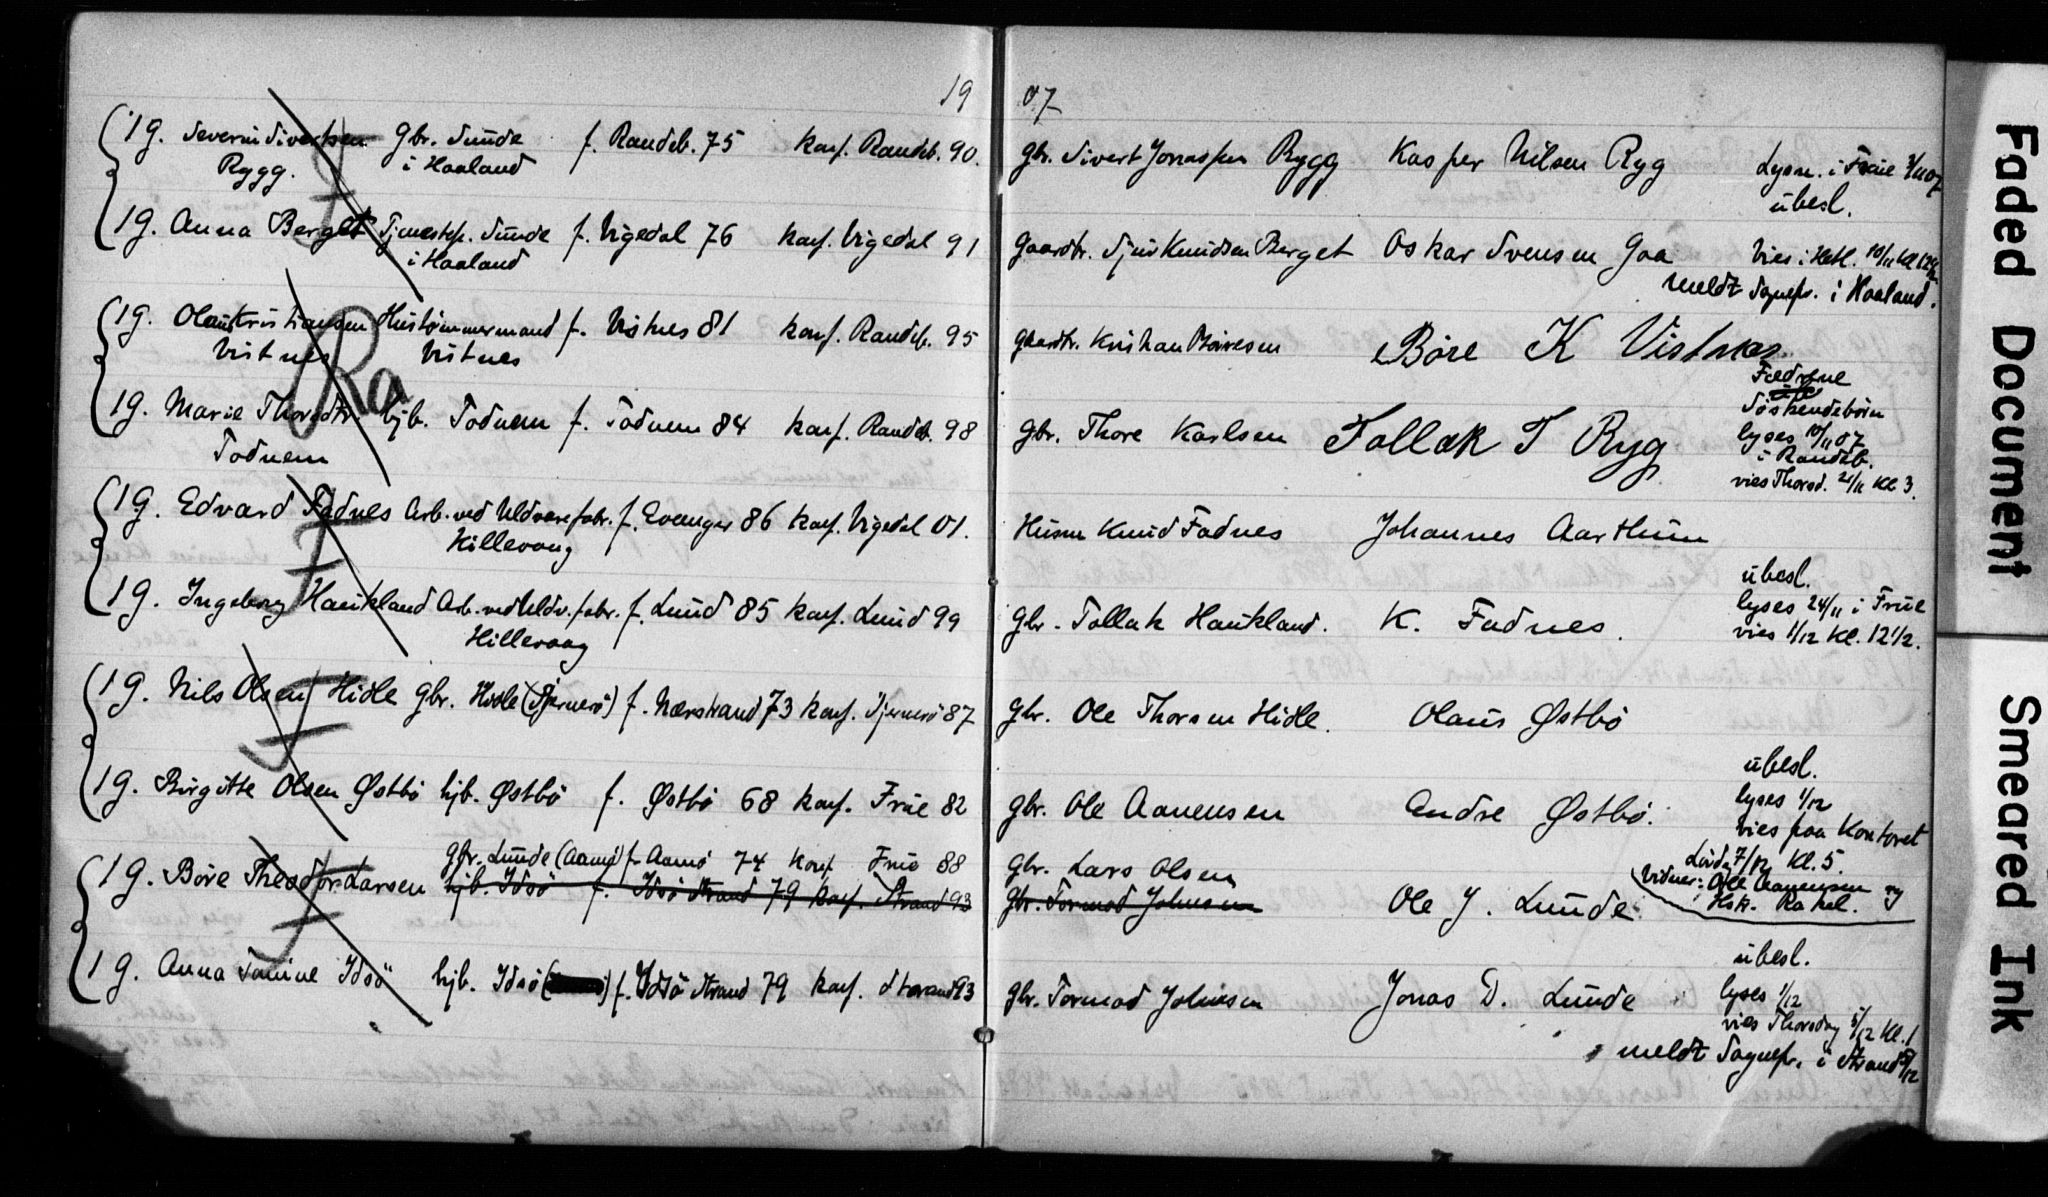 19 07
1 g. Severin Sivertsen gbr. Sunde f. Randeb. 75 konf. Randeb. 90. gbr. Sivert Jonassen Rygg Kasper Nilsen Ryg Lysn. i Frue 3/11 07
Rygg. i Haaland
ubesl.
1 g. Anna Berget Tjenestep. Sunde f. Vigedal 76 konf. Vigedal 91 gaardbr. Sjur Knudsen Berget Oskar Svensen Goa Vies i Hetl. 10/11 kl 12 1/2
i Haaland
meldt Sognepr. i Haaland.
1 g. Olaus Kristiansen Hustømmermand f. Vistnes 81 konf. Randeb. 95 gaardbr. Kristian Børesen Børe K Vistnes
Vistnes Vistnes
Ra
Fædrene
Søskendebörn
1 g. Marie Thoredtr. hjb. Todnem f. Todnem 84 konf. Randeb. 98 gbr. Thore Karlsen Tollak T Ryg lyses 10/11 07
Todnem
i Randeb.
vies Thorsd. 21/11 Kl 3.
1 g. Edvard Fadnes Arb. ved Uldvarefabr. f. Evanger 86 konf. Vigedal 01. Husm Knud Fadnes Johannes Aarthun
Hillevaag
ubesl.
1 g. Ingeborg Haukland Arb. ved Uldv.fabr. f. Lund 85 konf. Lund 99 gbr. Tollak Haukland. K. Fadnes. lyses 24/11 i Frue
Hillevaag
vies 1/12 Kl. 12 1/2.
1 g. Nils Olsen Hidle gbr. Hidle (Sjernerö) f. Nærstrand 73 konf. Sjernerö 87 gbr. Ole Thorsen Hidle. Olaus Østbö
ubesl.
1 g. Birgitte Olsen Østbö hjb. Østbö f. Østbö 68 konf. Frue 82 gbr. Ole Aanensen Andre Østbö. lyses 1/12
vies paa Kontoret
Lörd. 7/12 Kl. 5.
gbr. Lunde (Aamö) f. Aamö 74 konf Frue 88 gbr. Lars Olsen
1 g. Böre Theodor Larsen hjb. Idsö f. Idsö Strand 79 konf. Strand 93 gbr. Tormod Johnsen Ole J. Lunde Vidner: Ole Aanensen og
Hstr. Rakel.
ubesl.
1 g. Anna Tomine Idsö hjb. Idsö f. Idsö Strand 79 konf. Strand 93 gbr. Tormod Johnsen Jonas D. Lunde lyses 1/12
vies Thorsdag 5/12 Kl. 1
meldt Sognepr. i Strand 5/12
Faded Document
Smeared Ink